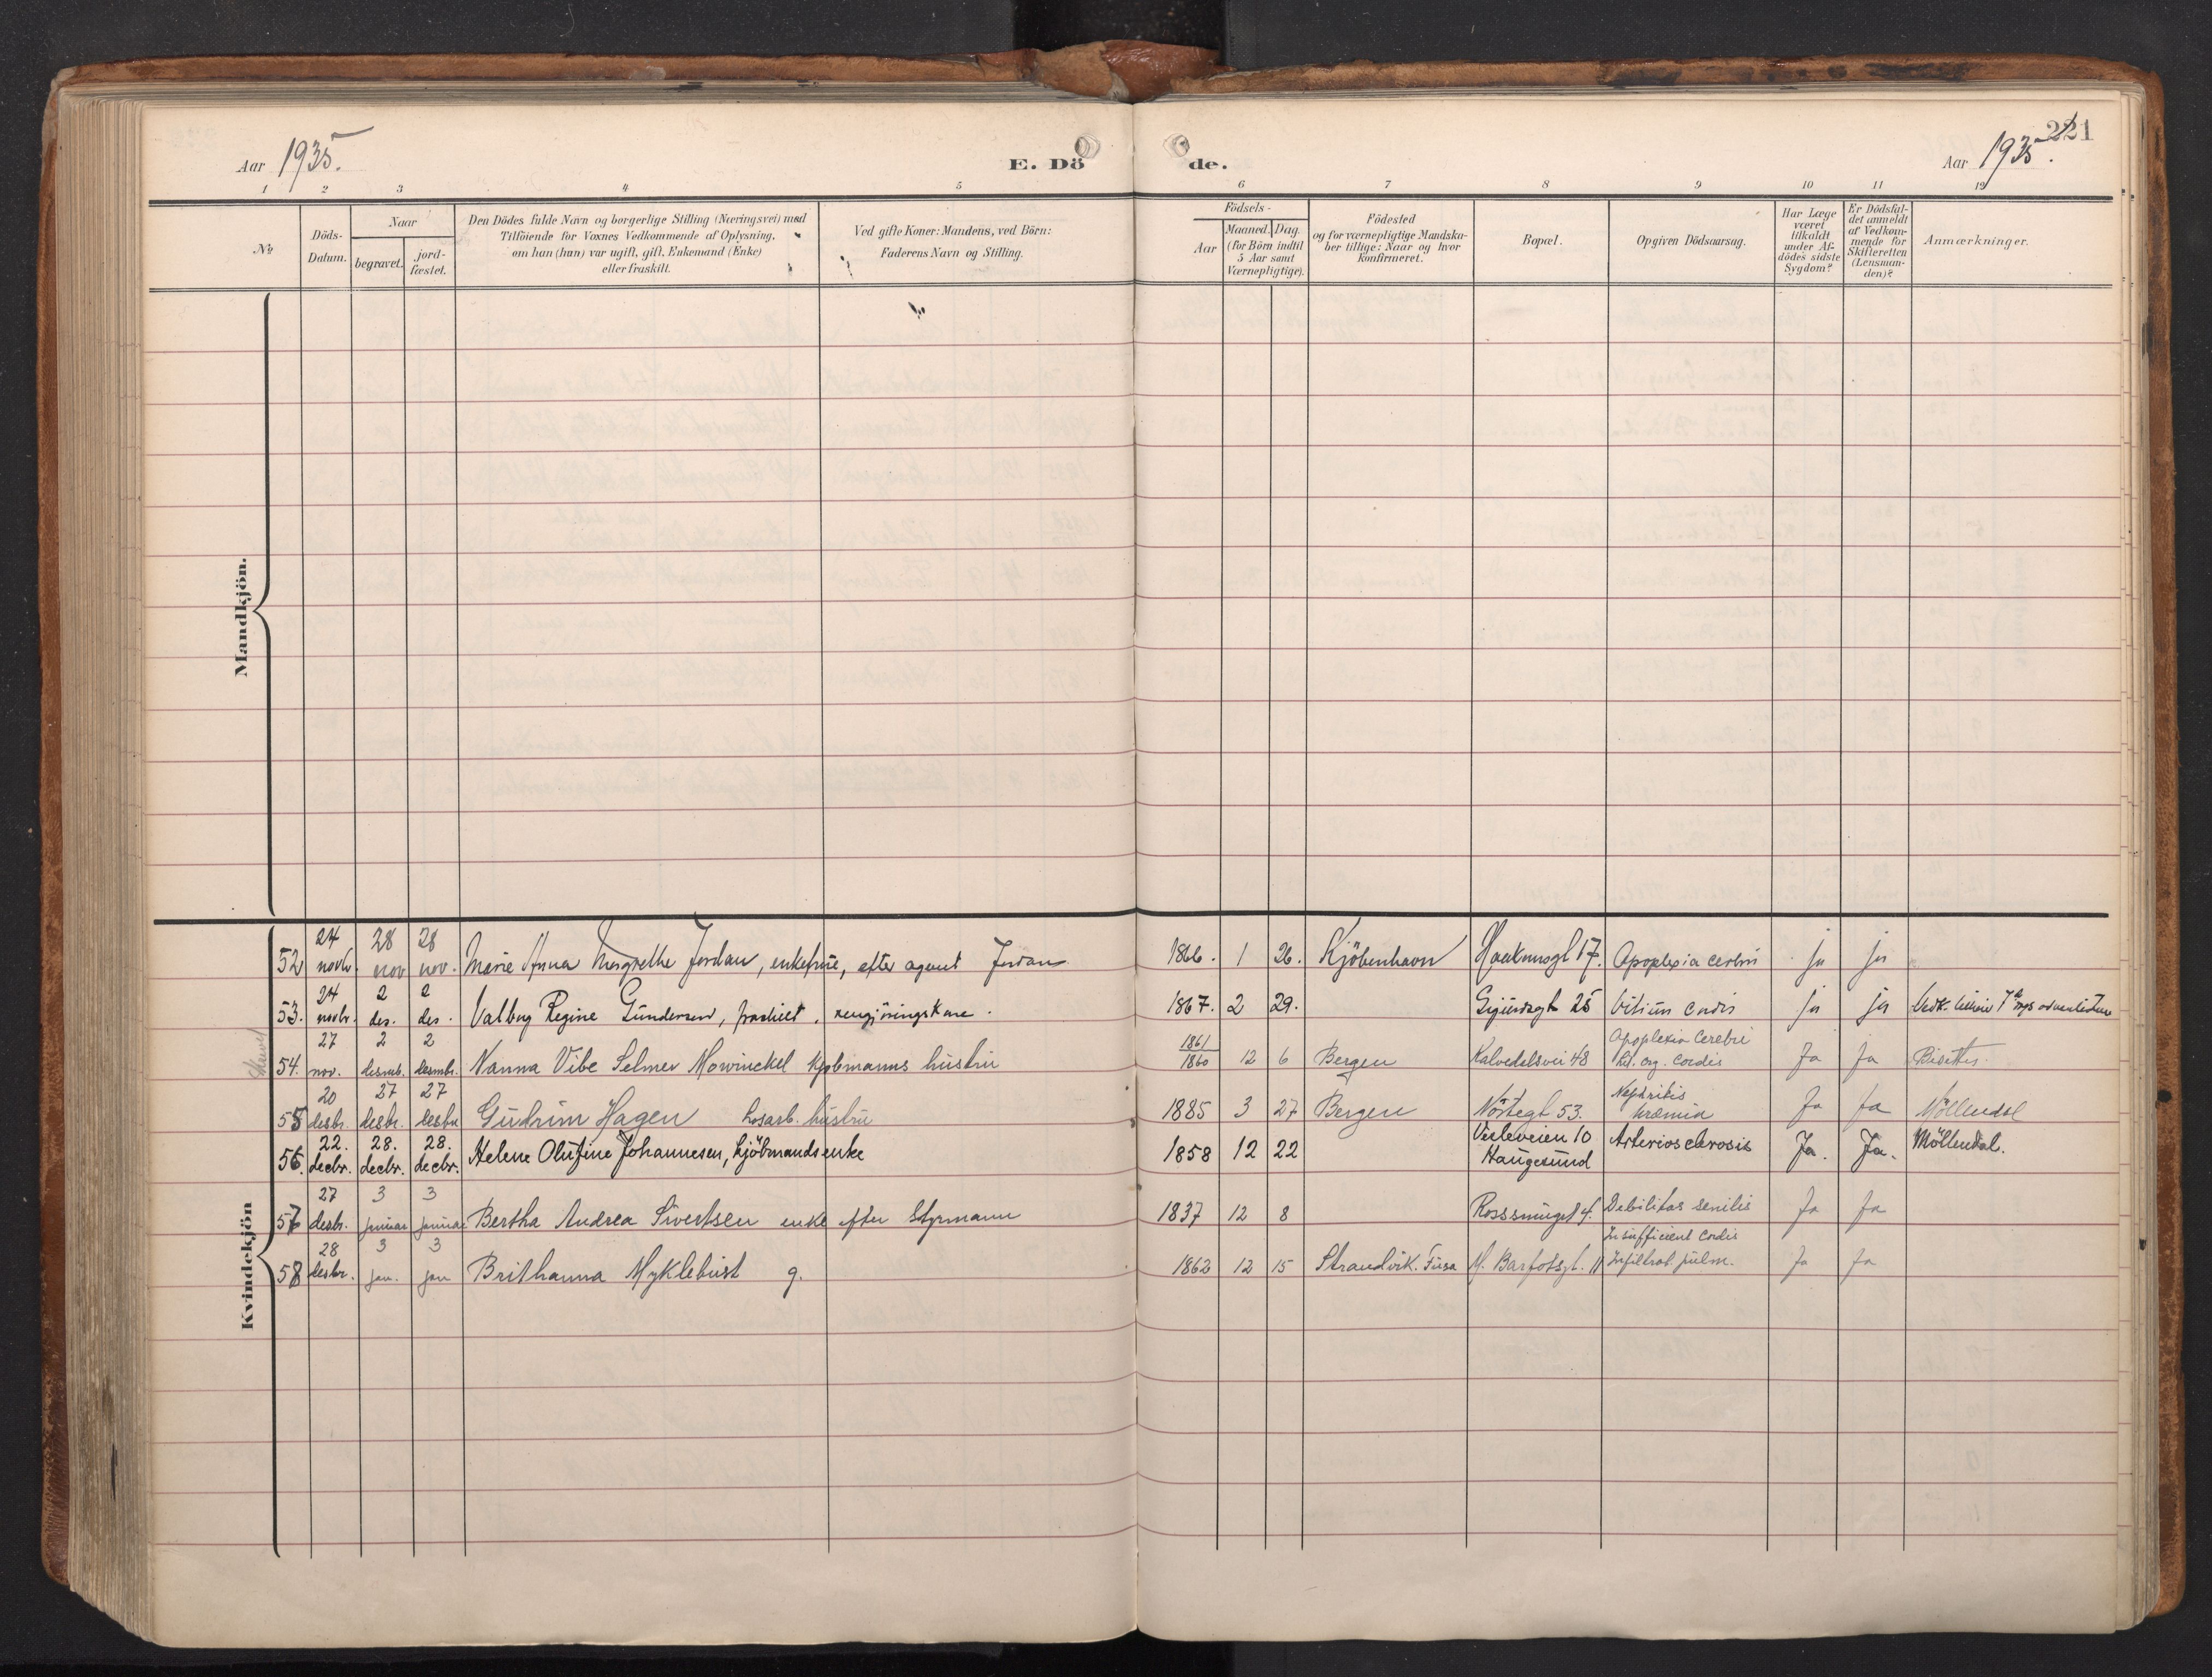 Aar 1935.
E. Dö
de.
Aar 1935.
221
1 2 3 4 5 6 7 8 9 10 11 12
No
Döds-
Datum.
Naar
begravet.
jord-
fæstet.
Den Dödes fulde Navn og borgerlige Stilling (Næringsvei) med
Tilföiende for Voxnes Vedkommende af Oplysning,
om han (hun) var ugift, gift, Enkemand (Enke)
eller fraskilt.
Ved gifte Koner: Mandens, ved Börn:
Faderens Navn og Stilling.
Födsels-
Aar
Maaned. Dag.
(for Börn indtil
5 Aar samt
Værnepligtige).
Födested
og for værnepligtige Mandska-
ber tillige: Naar og hvor
konfirmeret.
Bopæl.
Opgiven Dödsaarsag.
Har Læge
været
tilkaldt
under Af-
dödes sidste
Sygdom?
Er Dödsfal-
det anmeldt
af Vedkom-
mende for
Skifteretten
(Lensman-
den)?
Anmærkninger.
Mandkjön.
Kvindekjön
24 28 28
52 novbr. nov nov. Marie Anna Margrethe Jordan, enkefrue, efter agent Jordan 1866. 1 26. Kjöbenhavn Haakonsgt 17. Apoplexia cerebri ja ja
24 2 2
53. novbr. des. des. Valborg Regine Gundersen, fraskilt, rengjöringskone. 1867. 2 29. Sigurdsgt 25 Vitium cordis ja ja
27 2 2 1861 Apoplexia Cerebri
54. nov. desmb. desmbr. Nanna Vibe Selmer Mowinckel kjøbmanns hustru 1860 12 6 Bergen Kalvedalsvei 48 Vit. org. Cordis Ja Ja Bisettes.
20 27 27 Nephritis
55 desbr. desbr. desbr Gudrun Hagen losarb. hustru 1885 3 27 Bergen Nöstegt 53. Uræmia Ja Ja Möllendal
22. 28. 28. Veeleveien 10
56. decbr. decbr. decbr. Helene Olufine Johannesen, kjöbmandsenke 1858 12 22 Haugesund Arteriosclerosis Ja. Ja. Möllendal.
27 3 3
57 desbr. januar januar Bertha Andrea Sivertsen enke efter Styrmann 1837 12 8 Rosssmuget 4. Debilitas senilis Ja Ja
28 3 3 Insufficient Cordis
58 desbr. jan. jan Brithanna Myklebust g. 1862 12 15 Strandvik. Fusa M. Barfotsgt. 11 Infiltrat. pulm. Ja Ja